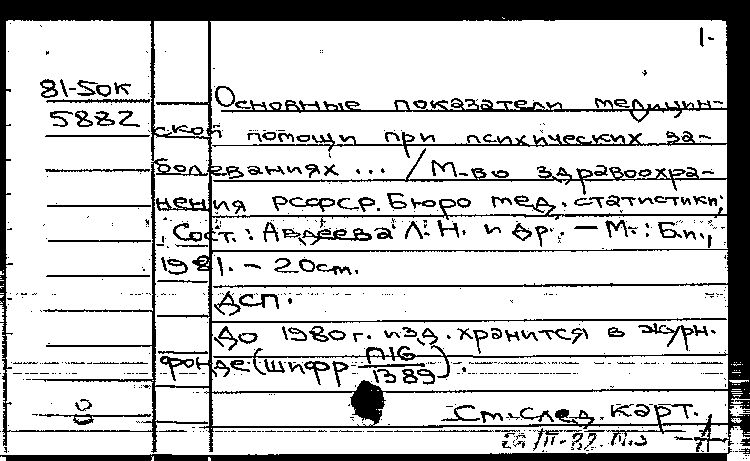 1-
81-50к
5882
Основные показатели медицин-
ской помощи при психических за-
болеваниях ... / М-во здравоохра-
нения РСФСР. Бюро мед. статистики;
Сост.: Авдеева Л.Н. и др. — М.: Б.и.,
1981. - 20см.
ДСП.
До 1980г. изд. хранится в журн.
фонде (шифр П16/1389).
См. след. карт.